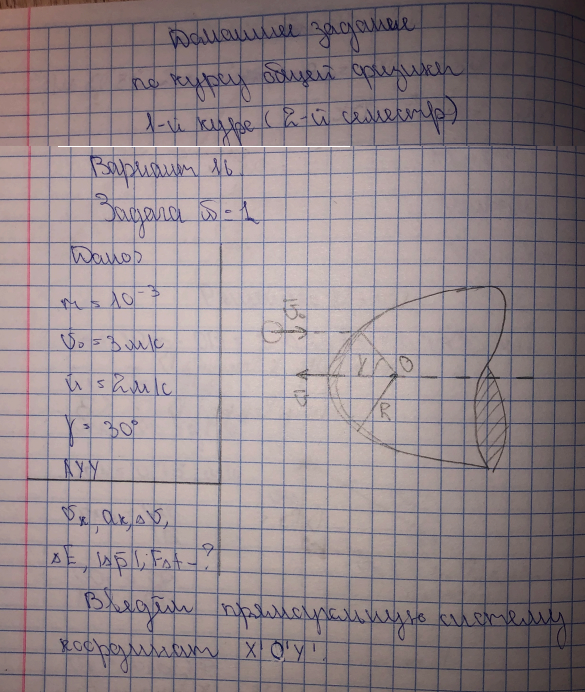 Домашнее задание
по курсу общей физики
1-й курс (2-й семестр)
Вариант 16.
Задача №1
Дано:
m = 10⁻³
v₀ = 3 м/с
u = 2 м/с
γ = 30°
АУУ
vк, aк, Δv,
ΔE, |Δp|, FΔt - ?
v̄₀
γ
O
v̄
R
Введём прямоугольную систему
координат X'O'Y'.